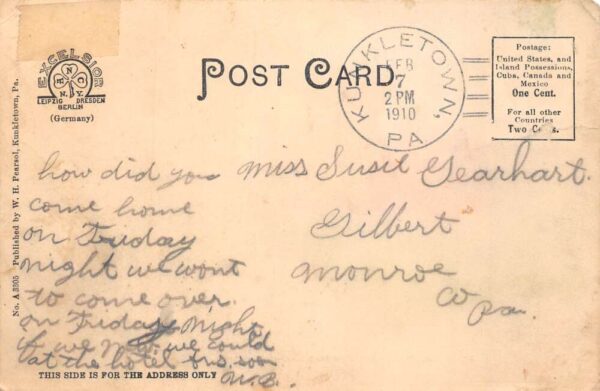 EXCELSIOR
R N C
N.Y.
LEIPZIG DRESDEN
BERLIN
(Germany)
POST CARD
KUNKLETOWN,
FEB
7
2 PM
1910
PA
Postage:
United States, and
Island Possessions,
Cuba, Canada and
Mexico
One Cent.
For all other
Countries
Two Cents.
No. A 3305 Published by W. H. Pearsol, Kunkletown, Pa.
how did you
come home
on Friday
night we wont
to come over
on Friday Night
if we we could
at the hotel soon
Miss Susie Gearhart.
Gilbert
Monroe
Co Pa.
THIS SIDE IS FOR THE ADDRESS ONLY